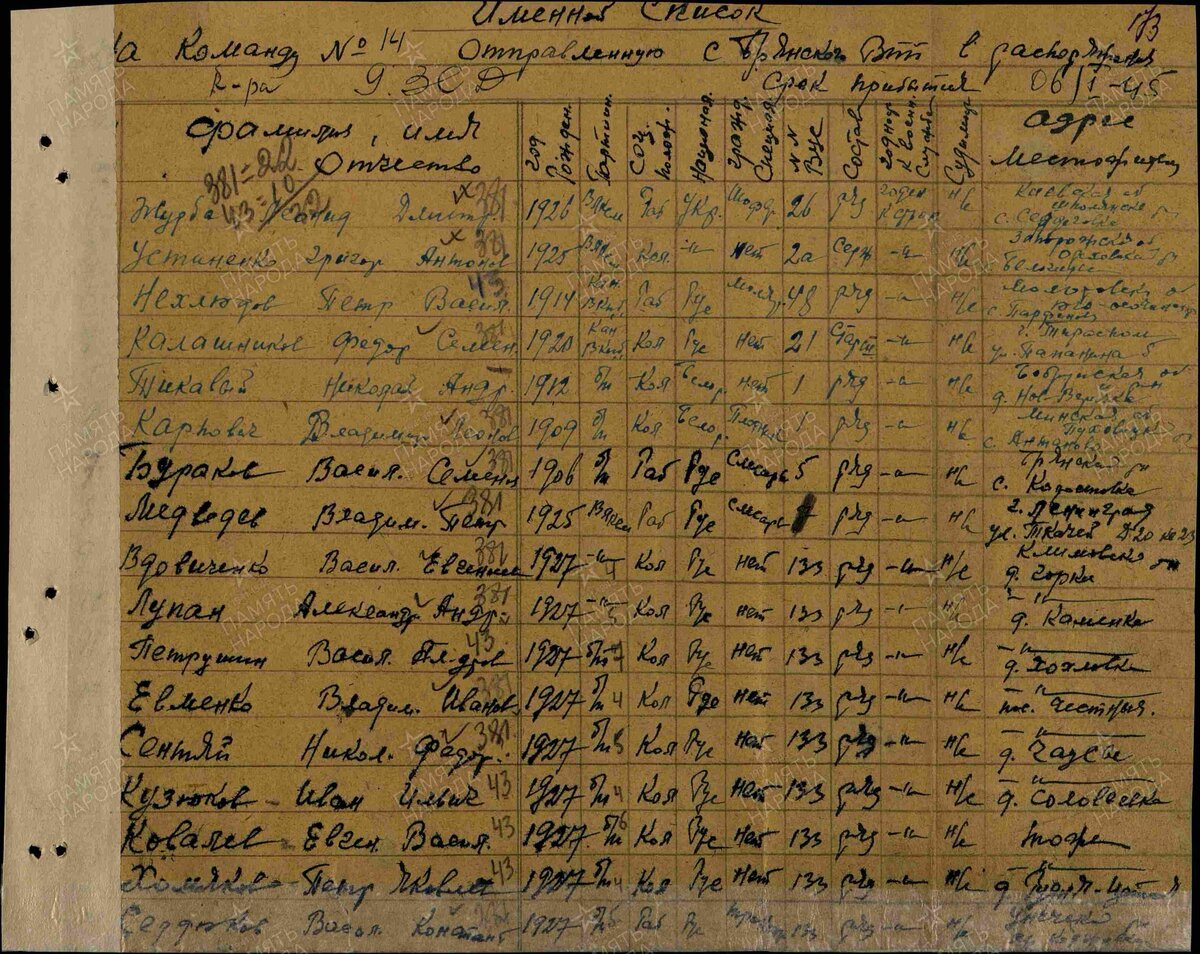 173
Именной Список
на Команду № 14 отправленную с Брянского ВПП в распоряжения
К-ра 9 ЗСД Срок прибытия 06/I-45
Фамилия, имя Отчество Год Рожден. Партийн. Соц. полож. Национал. Гражд. Специал. №№ ВУС Состав Годност К Воен. Службе Судимос Адрес местожитель
381=22
43=10
32
Журба Леонид Дмитр. 381 1926 Влксм Раб Укр. Шофр. 26 ряд годен к строю н/с Киевская об с.
Устиненко Григор Антонов 381 1925 Влкс Кол. -"- нет 2а Серж -"- н/с Запорожская об Ореховск
Нехлюдов Петр Васил. 43 1914 Кан. ВКП Раб Рус 48 ряд -"- н/с Молотовск об с.
Калашников Федор Семен. 381 1920 Кан ВКП Кол Рус нет 21 Старш -"- н/с г. Тирасполь ул. Папанина 5
Пикавый Николай Андр. 1912 б/п Кол Белор. нет 1 ряд -"- н/с Бобруйская об
Карпович Владимир Леонов 381 1909 б/п Кол Белор. Плотник 1 ряд -"- н/с Минская об с.
Бураков Васил. Семен. 381 1906 б/п Раб Рус слесарь 5 ряд -"- н/с Брянский рн с.
Медведев Владим. Петр 381 1925 Влксм Раб Рус слесарь ряд -"- н/с г. Ленинград ул. Ткачей д 20 кв 23
Вдовиченко Васил. Евгении 381 1927 -"- 4 Кол Рус нет 133 ряд -"- н/с Климовско рн д. Горки
Лупан Александр. Андр. 381 1927 -"- 5 Кол Рус нет 133 ряд -"- н/с -"- д. Каменка
Петрушин Васил. 43 1927 б/п 4 Кол Рус нет 133 ряд -"- н/с -"- д. Хохловка
Евменко Владим. Иванов. 381 1927 б/п 4 Кол Рус нет 133 ряд -"- н/с -"- пос. Честный.
Сентяй Никол. Федор. 381 1927 б/п Кол Рус нет 133 ряд -"- н/с -"- д.
Кузюков Иван Ильич 43 1927 б/п 4 Кол Рус нет 133 ряд -"- н/с -"- д. Соловьевка
Ковалев Евген. Васил. 43 1927 б/п 6 Кол Рус нет 133 ряд -"- н/с тоже
Хомяков Петр Яковлев 43 1927 б/п 4 Кол Рус нет 133 ряд -"- н/с -"- д.
Сердюков Васил. Констант 381 1927 б/п 6 Раб Рус 133 ряд -"- н/с Унечски рн